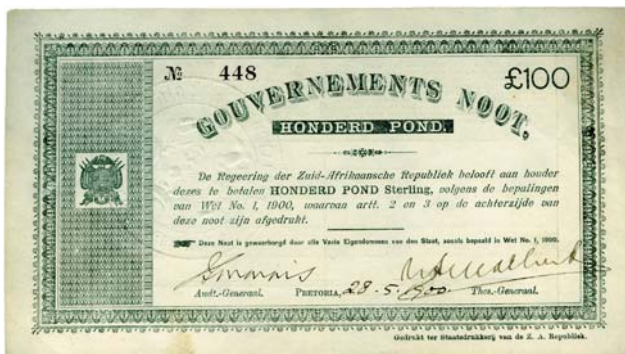 № 448 £100
GOUVERNEMENTS NOOT,
HONDERD POND.
De Regeering der Zuid-Afrikaansche Republiek belooft aan houder
dezes te betalen HONDERD POND Sterling, volgens de bepalingen
van Wet No. 1, 1900, waarvan artt. 2 en 3 op de achterzijde van
deze noot zijn afgedrukt.
Deze Noot is gewaarborgd door alle Vaste Eigendommen van den Staat, zooals bepaald in Wet No. 1, 1900.
Audt.-Generaal. PRETORIA, 28-5-1900 Thes.-Generaal.
Gedrukt ter Staatsdrukkerij van de Z. A. Republiek.